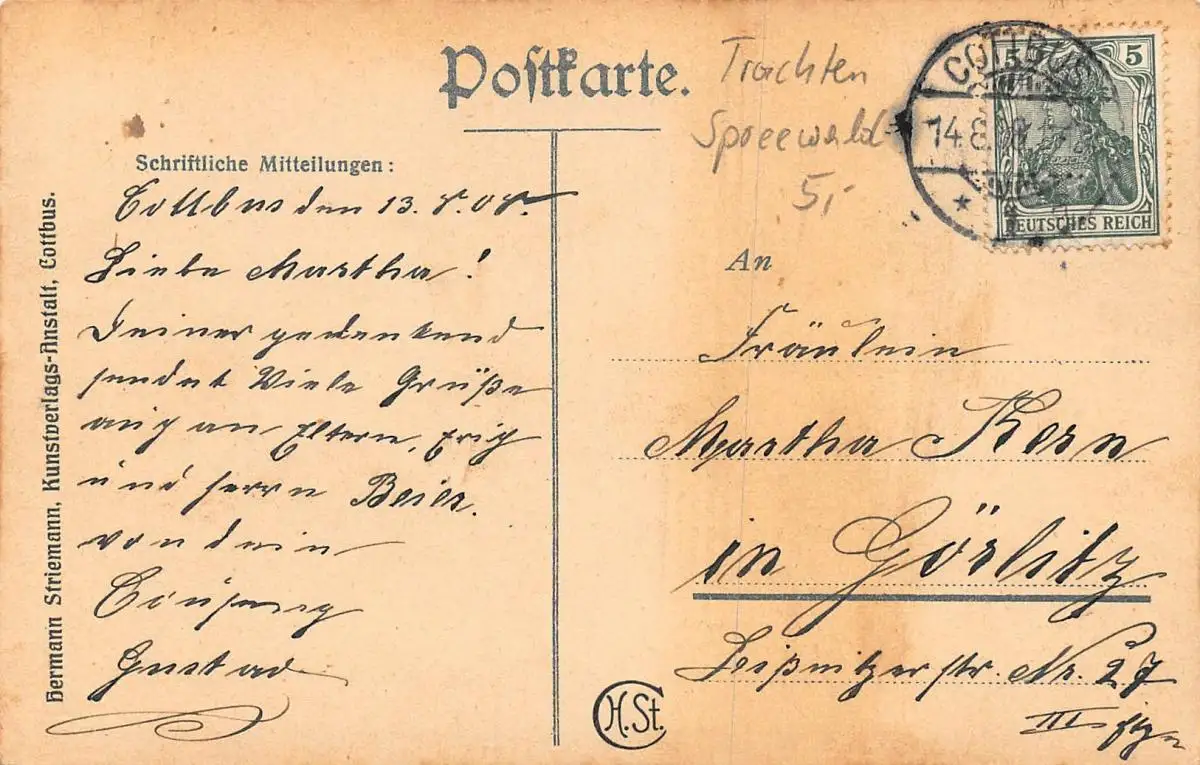 Postkarte.
Trachten
Spreewald
5,-
COTTBUS
14.8.
5 5
DEUTSCHES REICH
Schriftliche Mitteilungen:
Cottbus den 13.8.08.
Liebe Martha!
Deiner gedenkend
sendet Viele Grüße
auch an Eltern, Erich
und Herrn Beier.
von dein
Cousin
Gustav
Hermann Striemann, Kunstverlags-Anstalt, Cottbus.
An
Fräulein
Martha Kern
in Görlitz
Leißnitzerstr. Nr. 27
III
H.St.